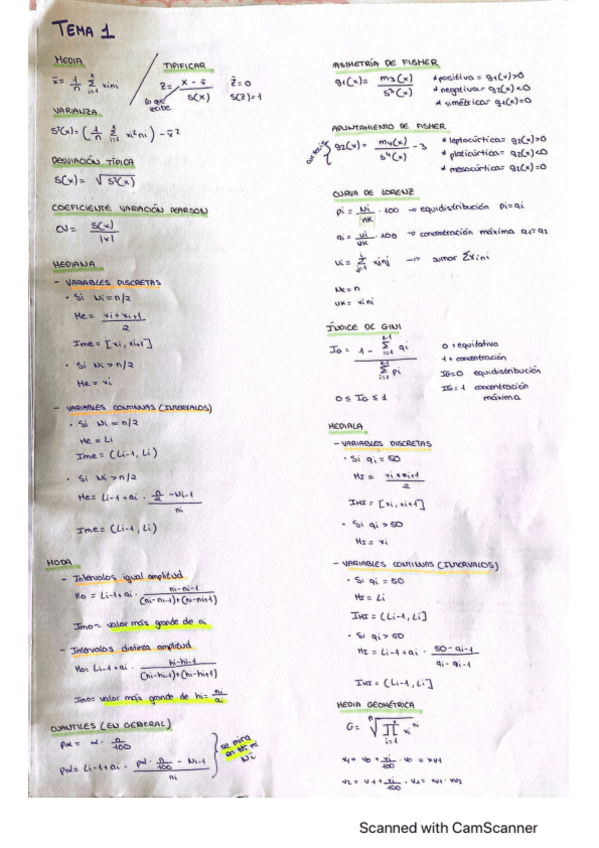 TEMA 1
MEDIA
x̄ = 1/n Σ xini
TIPIFICAR
z = (x - x̄)/S(x)
z̄ = 0
S(z) = 1
lo que
VARIANZA
S²(x) = (1/n Σ xi² ni) - x̄²
DESVIACIÓN TÍPICA
S(x) = √S²(x)
COEFICIENTE VARIACIÓN PEARSON
CV = S(x)/|x̄|
MEDIANA
- VARIABLES DISCRETAS
• Si Ni = n/2
Me = (xi + xi+1)/2
Ime = [xi, xi+1]
• Si Ni > n/2
Me = xi
- VARIABLES CONTINUAS (INTERVALOS)
• Si Ni = n/2
Me = Li
Ime = (Li-1, Li)
• Si Ni > n/2
Me = Li-1 + ai · (n/2 - Ni-1)/ni
Ime = (Li-1, Li)
MODA
- Intervalos igual amplitud
Mo = Li-1 + ai · (ni - ni-1)/((ni - ni-1) + (ni - ni+1))
Imo = valor más grande de ni
- Intervalos distinta amplitud
Mo = Li-1 + ai · (hi - hi-1)/((hi - hi-1) + (hi - hi+1))
Imo = valor más grande de hi = ni/ai
CUANTILES (EN GENERAL)
pα = α · n/100
pα = Li-1 + ai · (pα · n/100 - Ni-1)/ni
se mira
Ni
ASIMETRÍA DE FISHER
g1(x) = m3(x)/s³(x)
* positiva = g1(x)>0
* negativa = g2(x)<0
* simétrica = g1(x)=0
APUNTAMIENTO DE FISHER
curtosis
g2(x) = m4(x)/s⁴(x) - 3
* leptocúrtica = g2(x)>0
* platicúrtica = g2(x)<0
* mesocúrtica = g2(x)=0
CURVA DE LORENZ
pi = Ni/Nk · 100 → equidistribución pi = qi
qi = ui/uk · 100 → concentración máxima q1 = q2
ui = Σ xjnj → sumar Σxini
Nk = n
uk = xini
ÍNDICE DE GINI
IG = 1 - Σ qi / Σ pi
0 → equitativo
1 → concentración
IG=0 equidistribución
IG=1 concentración
máxima
0 ≤ IG ≤ 1
MEDIALA
- VARIABLES DISCRETAS
• Si qi = 50
Ml = (xi + xi+1)/2
IMl = [xi, xi+1]
• Si qi > 50
Ml = xi
- VARIABLES CONTINUAS (INTERVALOS)
• Si qi = 50
Ml = Li
IMl = (Li-1, Li]
• Si qi > 50
Ml = Li-1 + ai · (50 - qi-1)/(qi - qi-1)
IMl = (Li-1, Li]
MEDIA GEOMÉTRICA
G = ⁿ√∏ xi^ni
Scanned with CamScanner